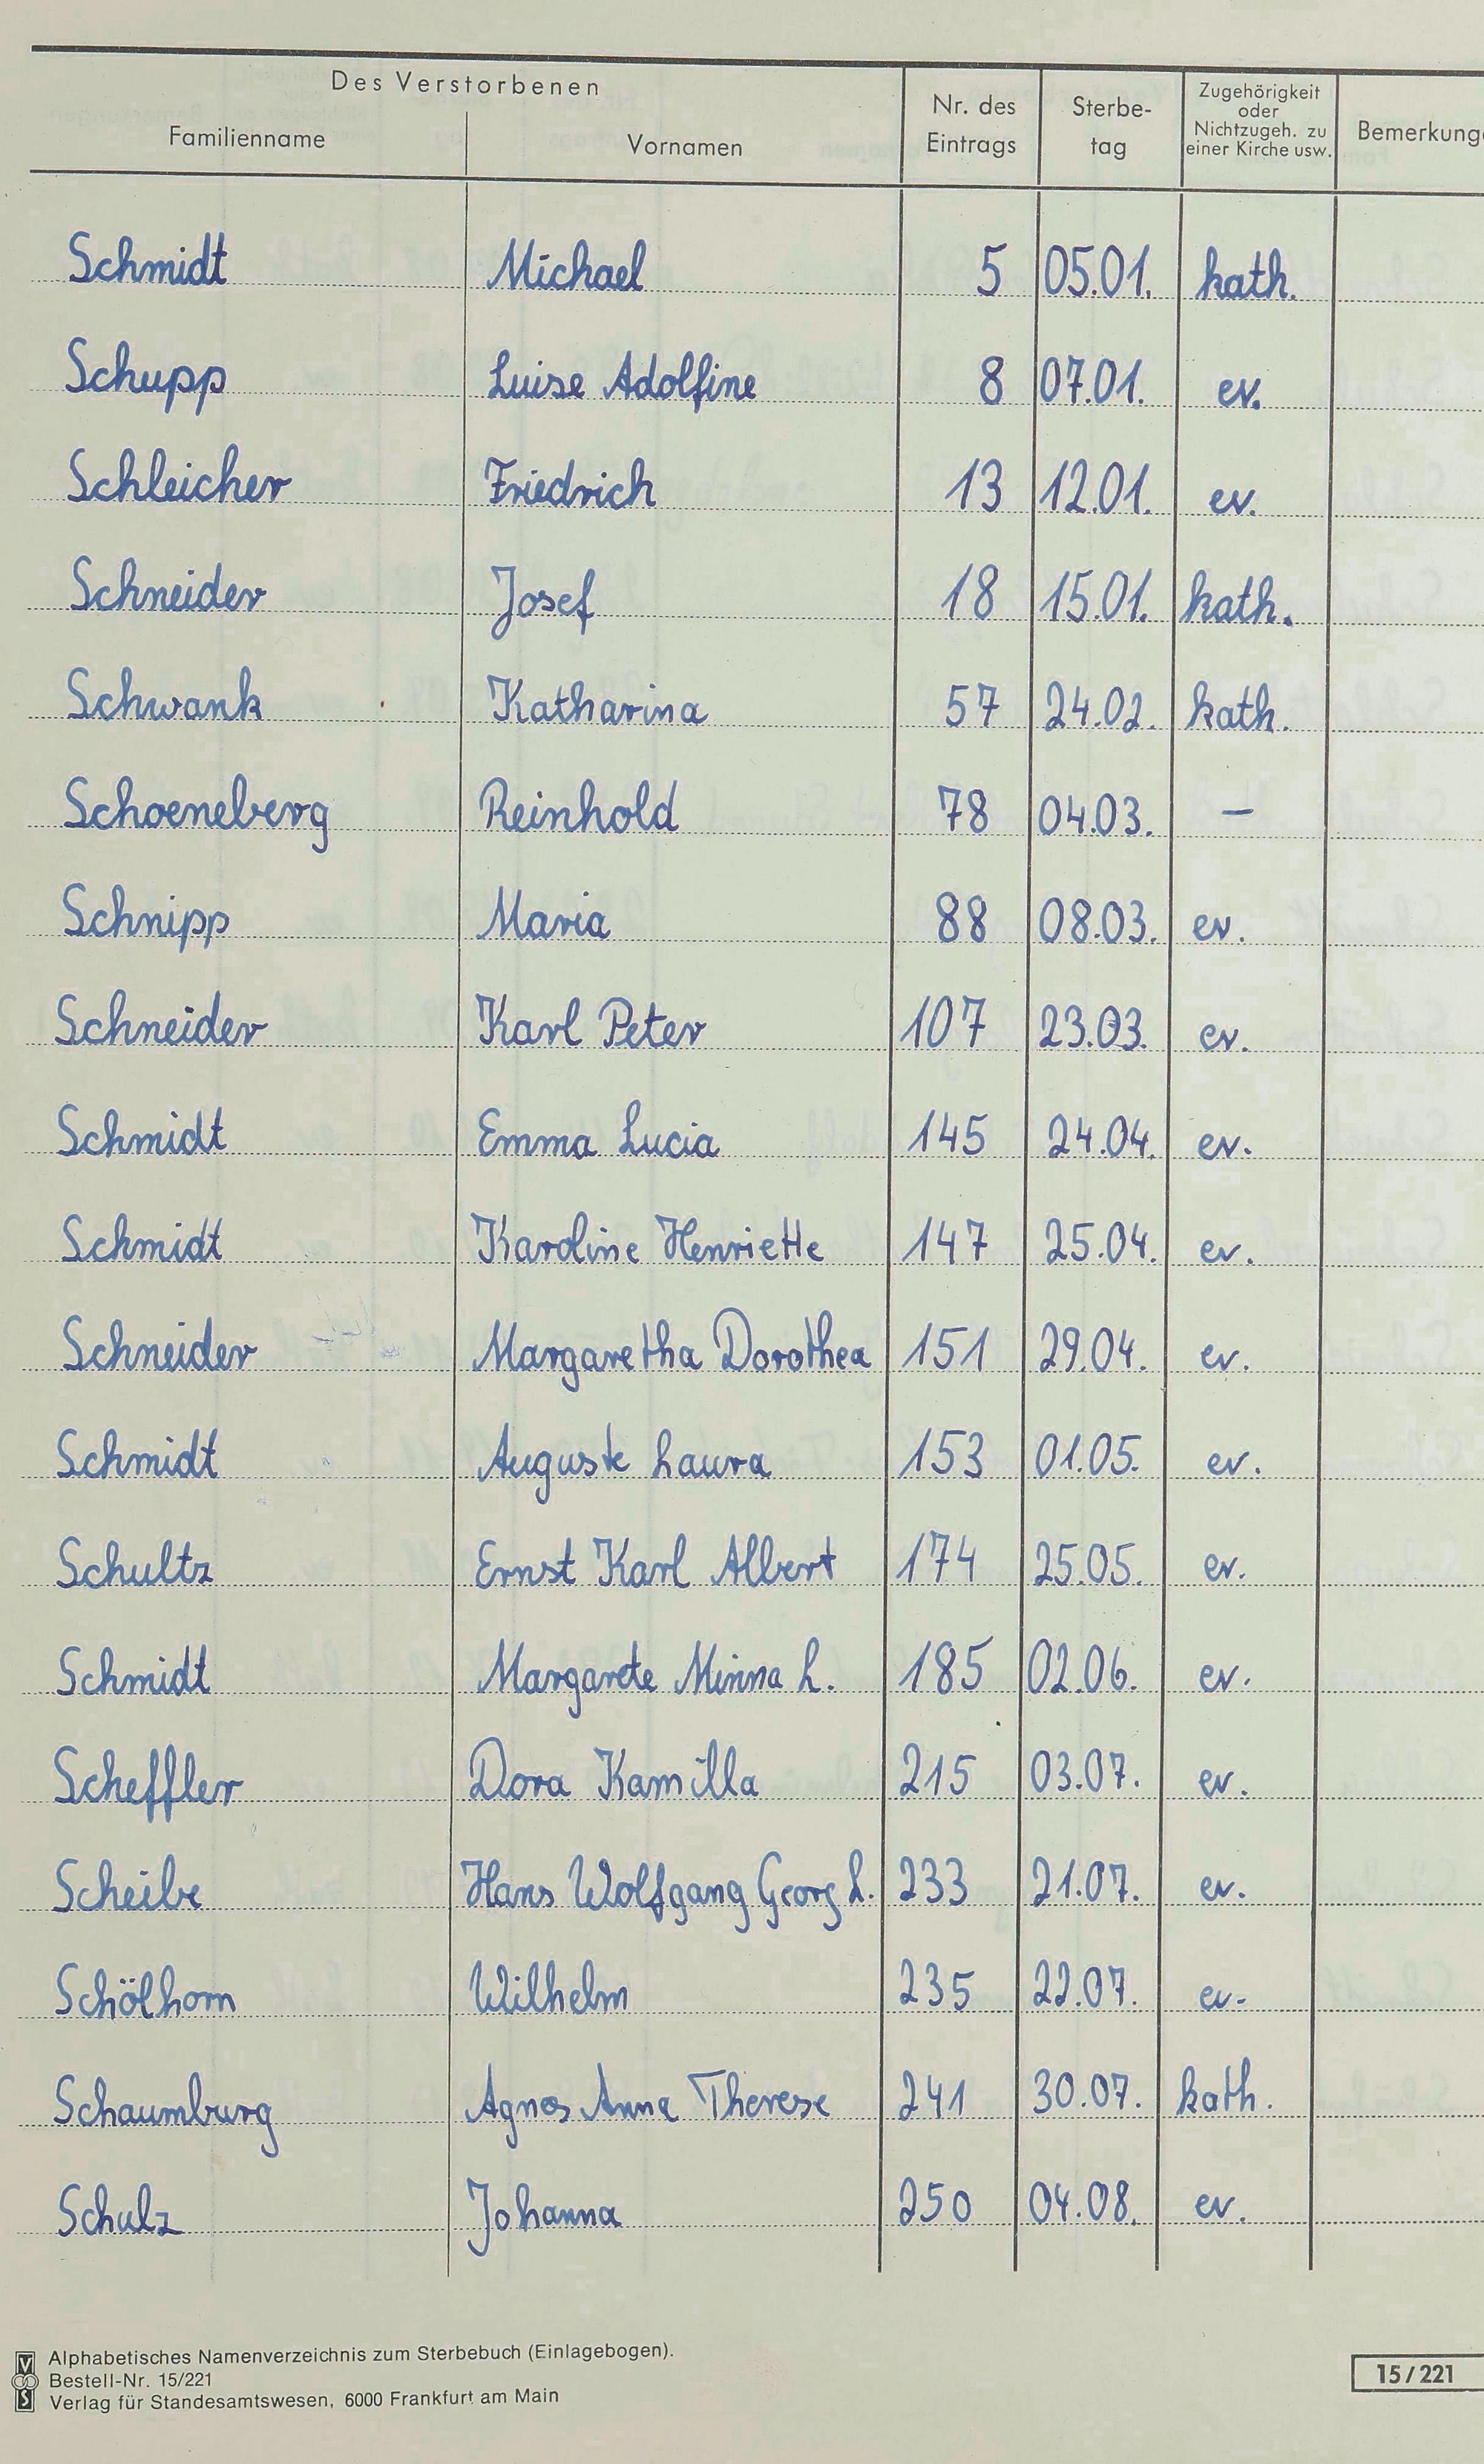 Des Verstorbenen
Familienname Vornamen Nr. des Eintrags Sterbe-tag Zugehörigkeit oder Nichtzugeh. zu einer Kirche usw. Bemerkung
Schmidt Michael 5 05.01. kath.
Schupp Luise Adolfine 8 07.01. ev.
Schleicher Friedrich 13 12.01. ev.
Schneider Josef 18 15.01. kath.
Schwank Katharina 57 24.02. kath.
Schoeneberg Reinhold 78 04.03. –
Schnipp Maria 88 08.03. ev.
Schneider Karl Peter 107 23.03. ev.
Schmidt Emma Lucia 145 24.04. ev.
Schmidt Karoline Henriette 147 25.04. ev.
Schneider Margaretha Dorothea 151 29.04. ev.
Schmidt Auguste Laura 153 01.05. ev.
Schultz Ernst Karl Albert 174 25.05. ev.
Schmidt Margarete Minna L. 185 02.06. ev.
Scheffler Dora Kamilla 215 03.07. ev.
Scheibe Hans Wolfgang Georg L. 233 21.07. ev.
Schölhorn Wilhelm 235 22.07. ev.
Schaumburg Agnes Anna Therese 241 30.07. kath.
Schulz Johanna 250 04.08. ev.
Alphabetisches Namenverzeichnis zum Sterbebuch (Einlagebogen).
Bestell-Nr. 15/221
Verlag für Standesamtswesen, 6000 Frankfurt am Main
15/221